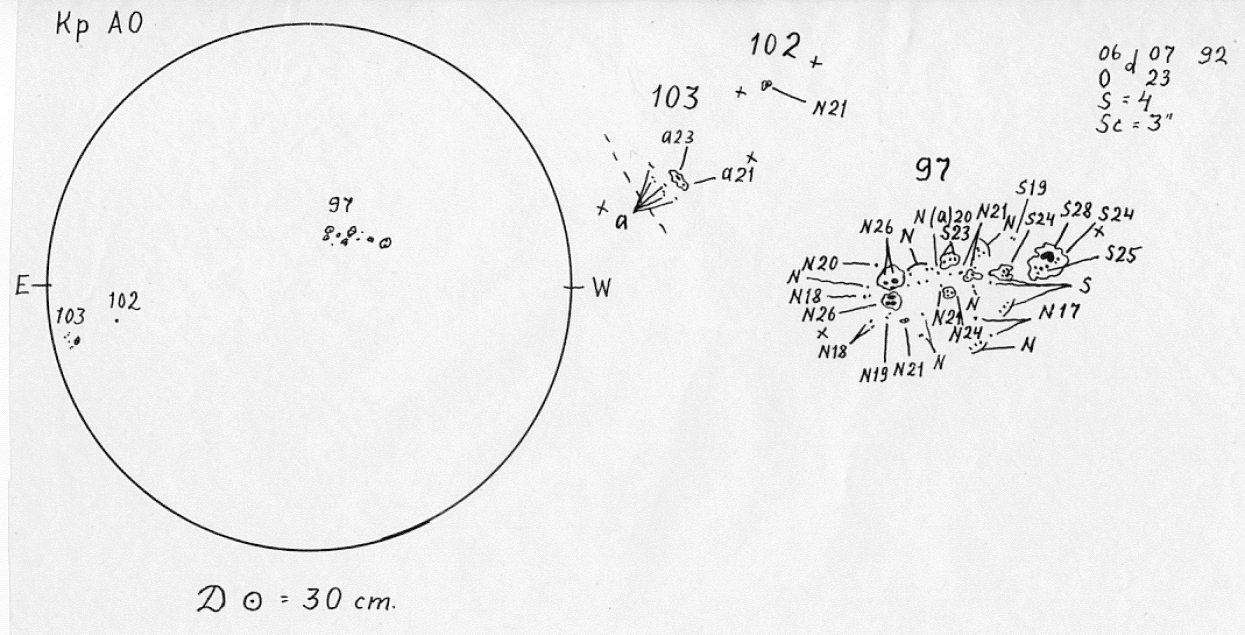 Kp AO
102
06 d 07 92
0 23
S = 4
Sc = 3"
103
N21
a23
a21
a
97
E
W
103
102
97
S19
N26
N
N(a)20
S23
N21
N
S24
S28
S24
N20
S25
N
S
N18
N26
N21
N
N17
N24
N18
N
N19
N21
N
D ⊙ = 30 cm.